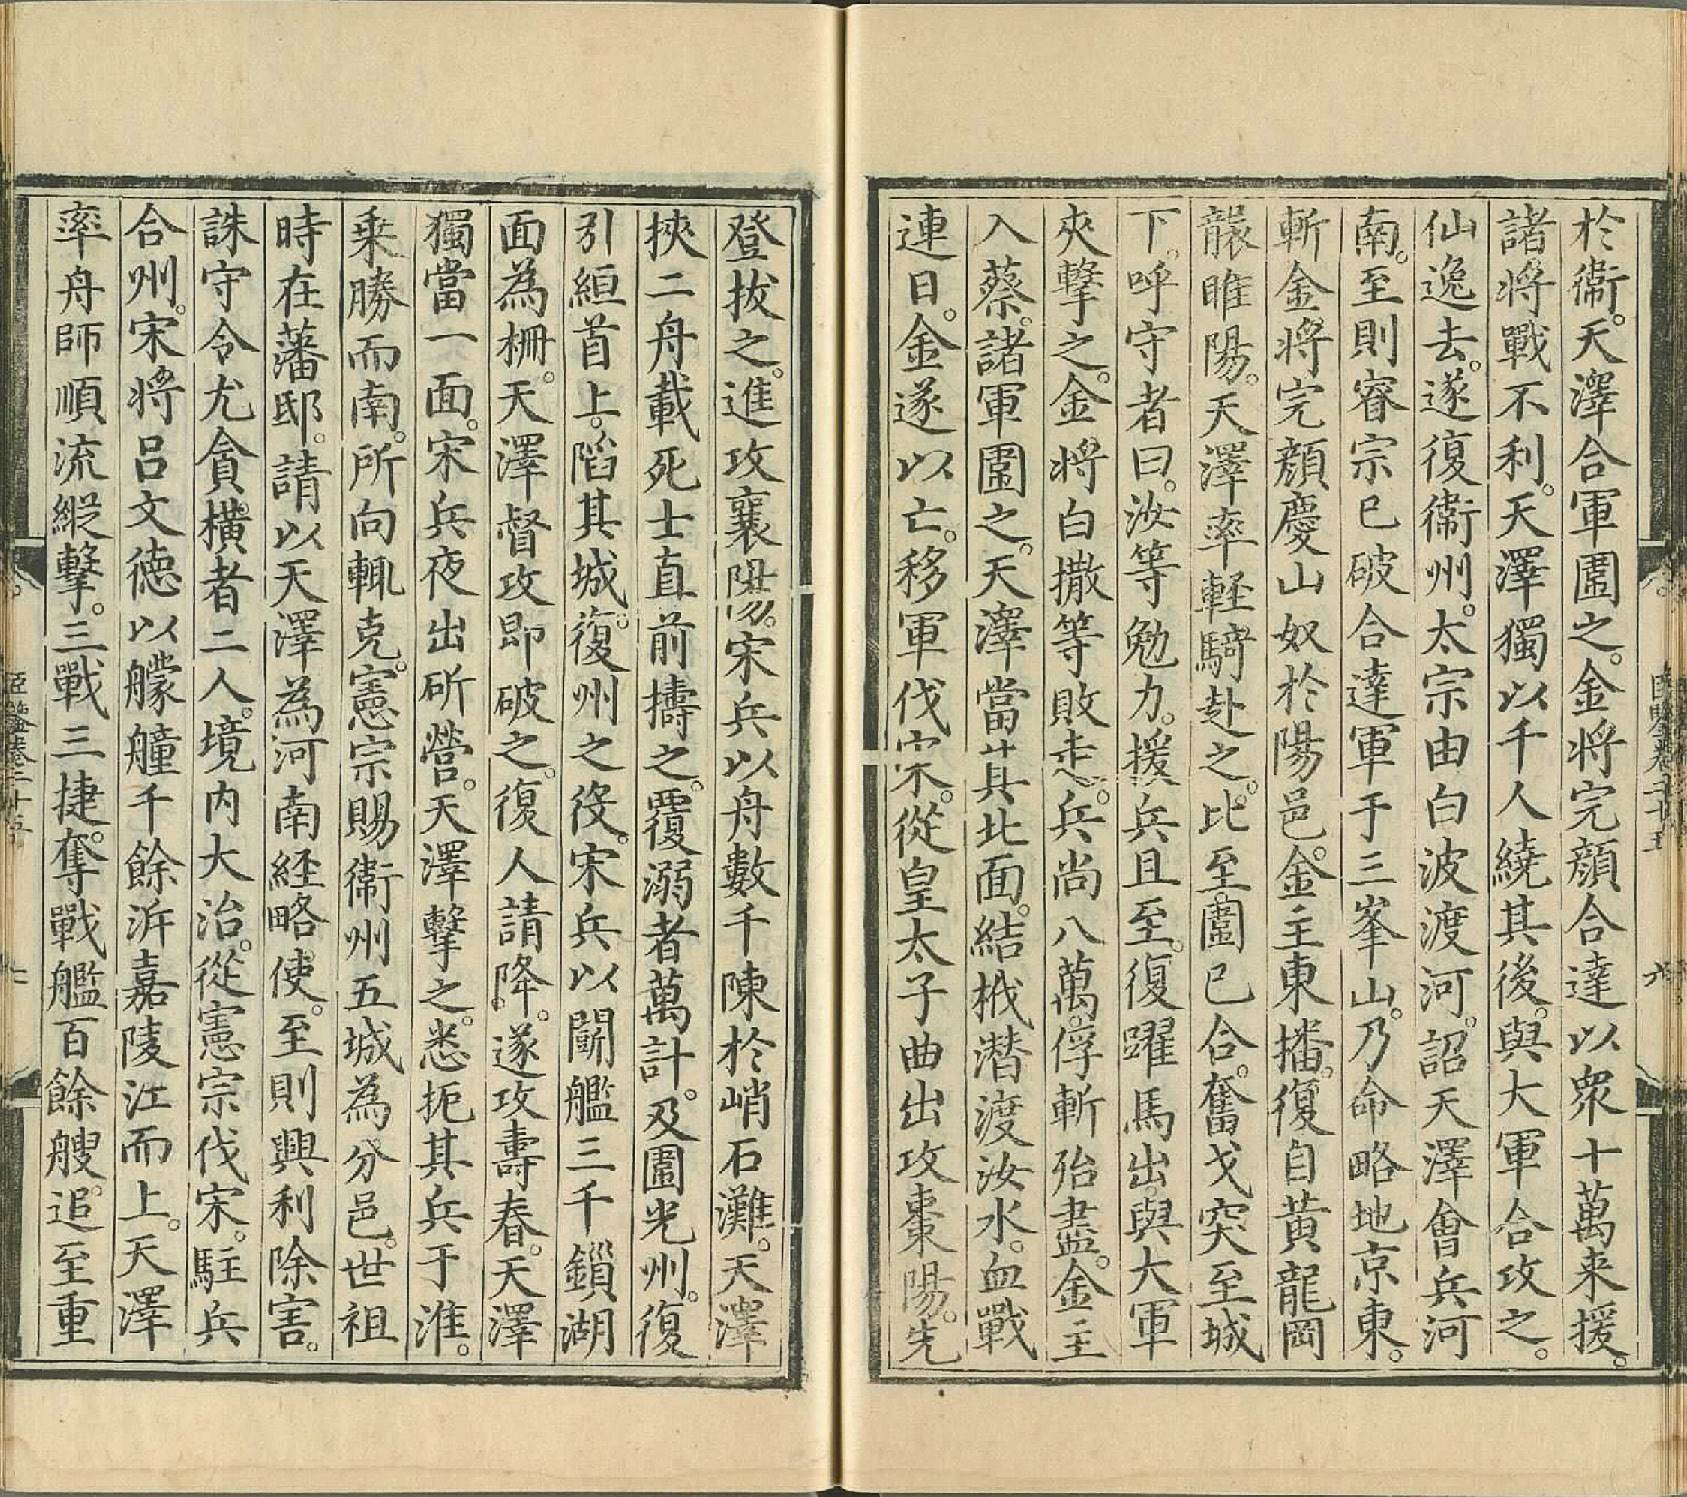 於衞。天澤合軍圍之。金將完顔合達以衆十萬来援。
諸將戰不利。天澤獨以千人繞其後。與大軍合攻之。
仙逸去。遂復衞州。太宗由白波渡河。詔天澤會兵河
南。至則睿宗已破合達軍于三峯山。乃命略地京東。
斬金將完顔慶山奴於陽邑。金主東播。復自黄龍岡
襲睢陽。天澤率軽騎赴之。比至。圍已合。奮戈突至城
下。呼守者曰。汝等勉力。援兵且至。復躍馬出。與大軍
夾擊之。金將白撒等敗走。兵尚八萬。俘斬殆盡。金主
入蔡。諸軍圍之。天澤當其北面。結栰潜渡汝水。血戰
連日。金遂以亡。移軍伐宋。從皇太子曲出攻棗陽。先
登拔之。進攻襄陽。宋兵以舟數千陳於峭石灘。天澤
挾二舟載死士直前擣之。覆溺者萬計。及圍光州。復
引絙首上。陷其城。復州之役。宋兵以鬭艦三千鎻湖
面為柵。天澤督攻即破之。復人請降。遂攻壽春。天澤
獨當一面。宋兵夜出斫營。天澤擊之。悉扼其兵于淮。
乗勝而南。所向輒克。憲宗賜衞州五城為分邑。世祖
時在藩邸。請以天澤為河南経略使。至則興利除害。
誅守令尤貪横者二人。境内大治。從憲宗伐宋。駐兵
合州。宋將呂文德以艨艟千餘泝嘉陵江而上。天澤
率舟師順流縱擊。三戰三捷。奪戰艦百餘艘。追至重